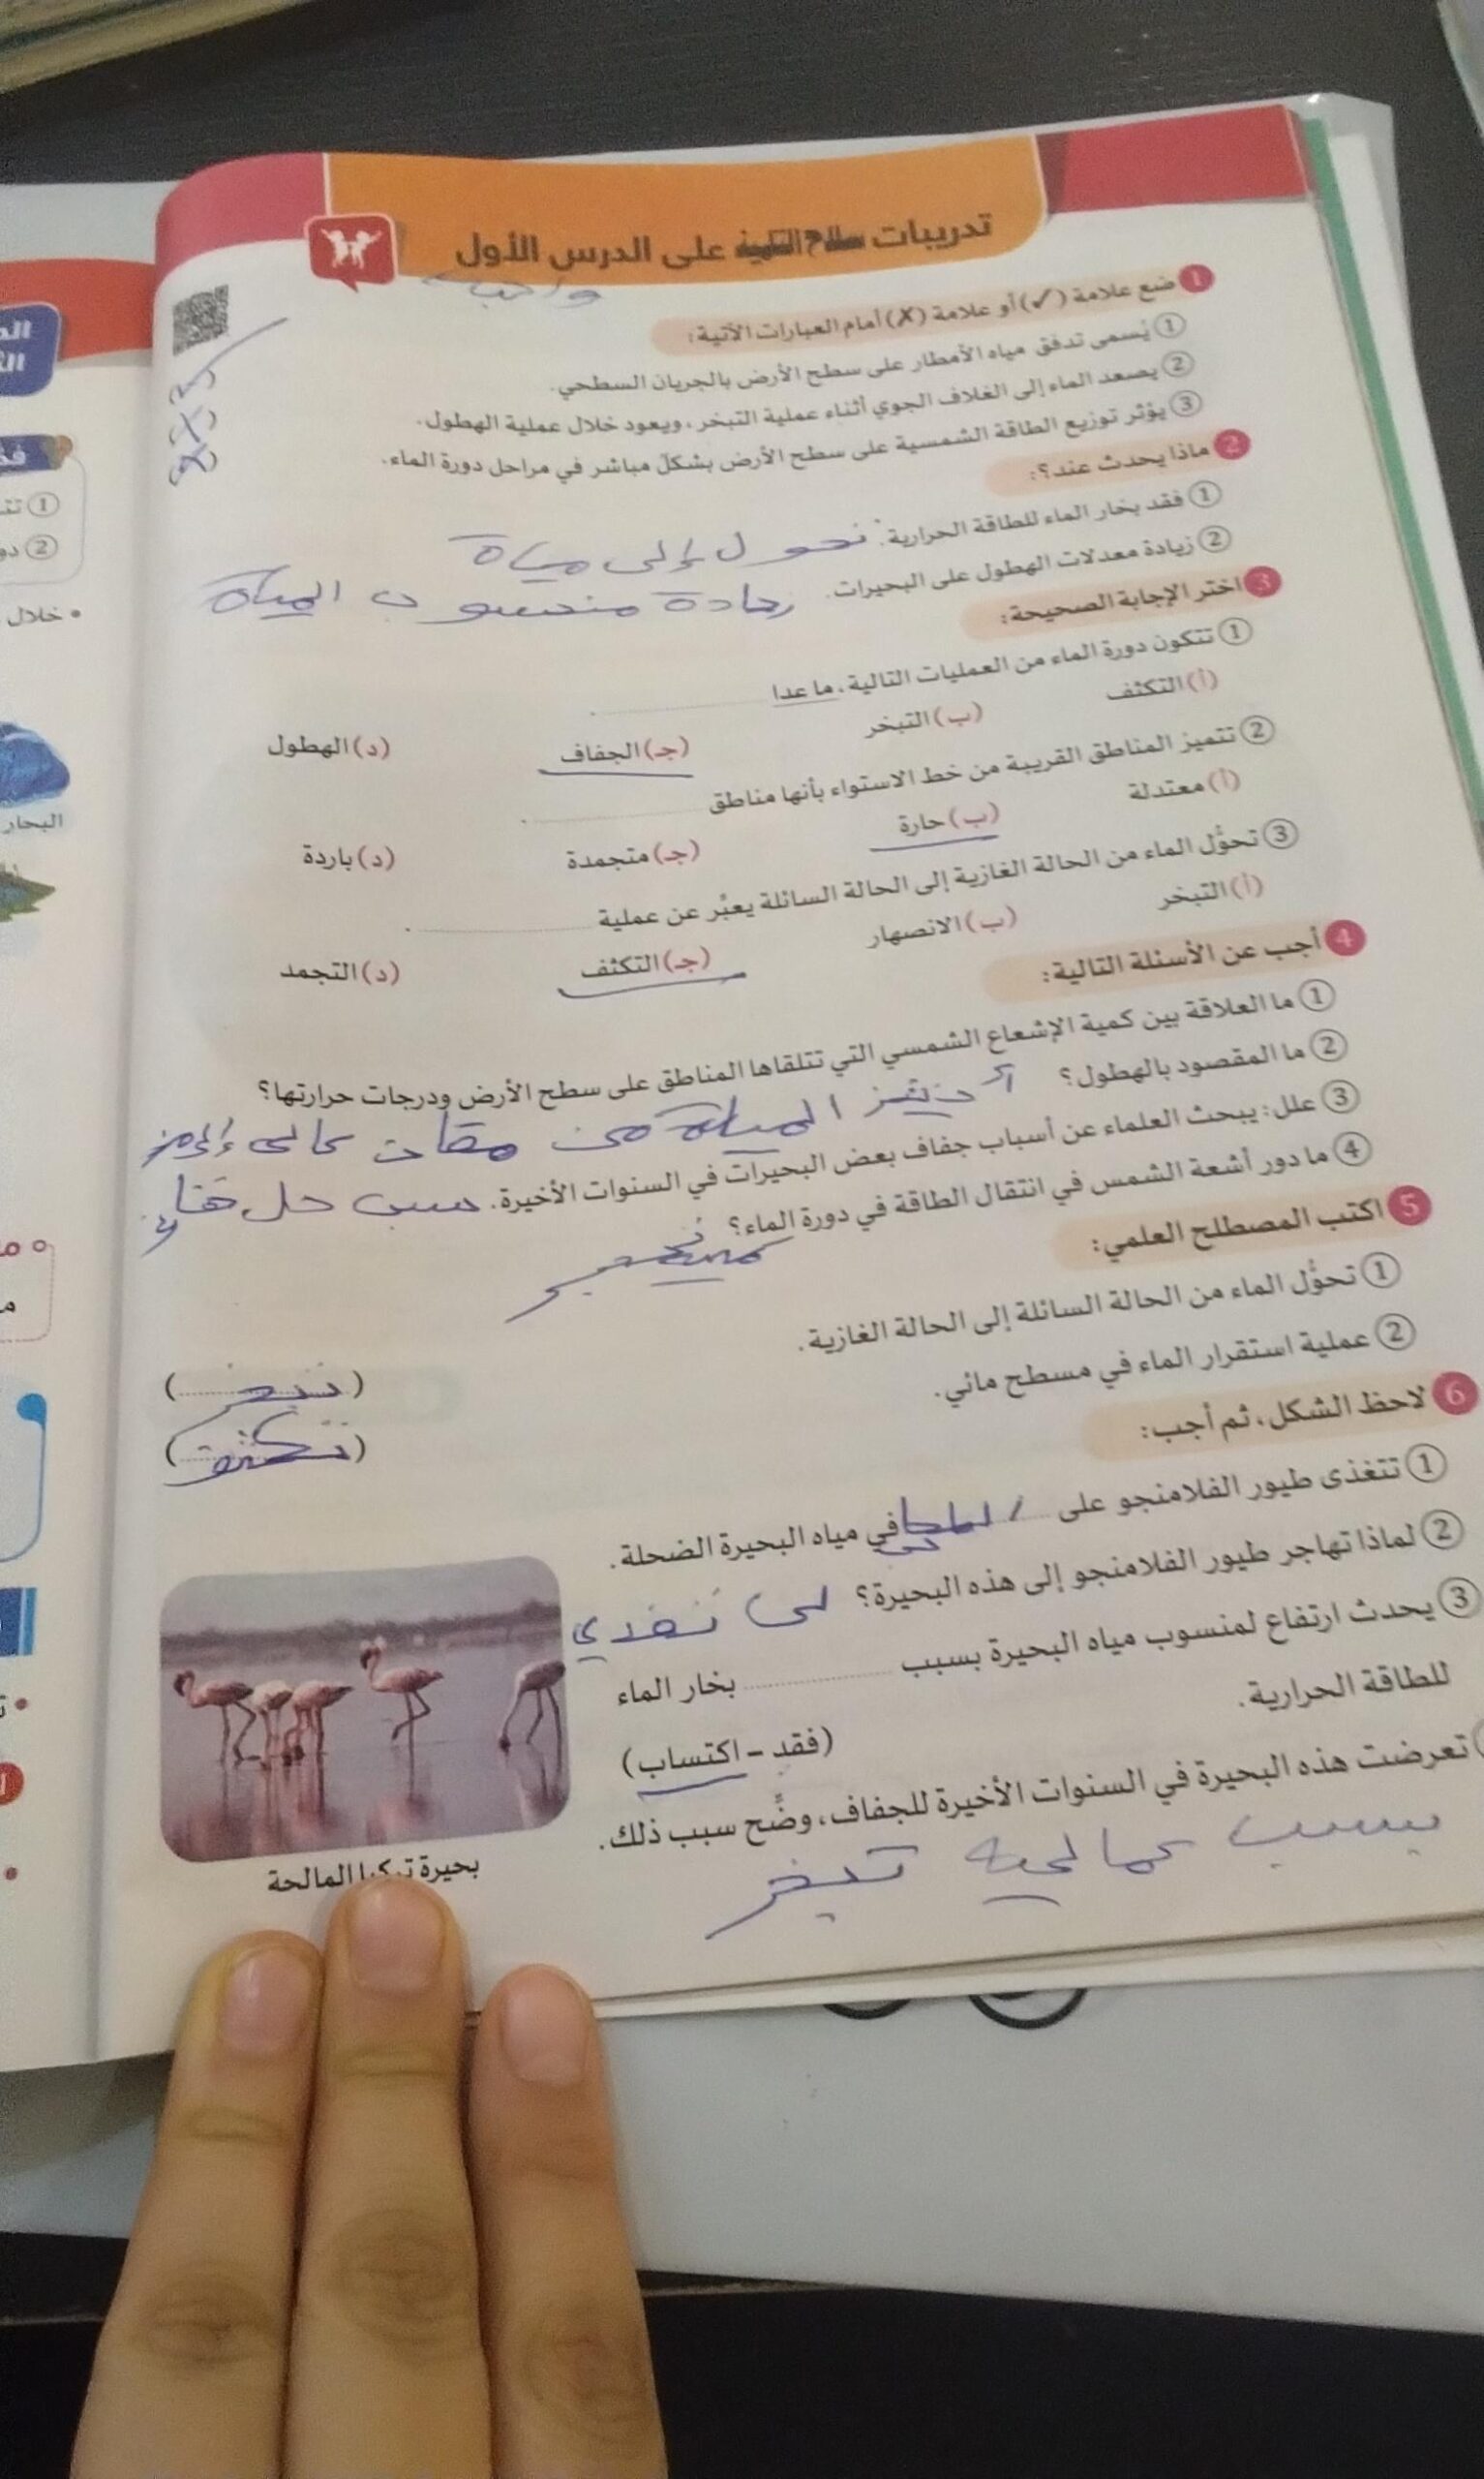 تدريبات سلاح التلميذ على الدرس الأول
واجب
1 ضع علامة (✓) أو علامة (✗) أمام العبارات الآتية:
① يُسمى تدفق مياه الأمطار على سطح الأرض بالجريان السطحي.
② يصعد الماء إلى الغلاف الجوي أثناء عملية التبخر، ويعود خلال عملية الهطول.
③ يؤثر توزيع الطاقة الشمسية على سطح الأرض بشكل مباشر في مراحل دورة الماء.
2 ماذا يحدث عند؟:
① فقد بخار الماء للطاقة الحرارية. تحول إلى مياة
② زيادة معدلات الهطول على البحيرات. زيادة منسوب المياة
3 اختر الإجابة الصحيحة:
① تتكون دورة الماء من العمليات التالية، ما عدا
(أ) التكثف (ب) التبخر (جـ) الجفاف (د) الهطول
② تتميز المناطق القريبة من خط الاستواء بأنها مناطق
(أ) معتدلة (ب) حارة (جـ) متجمدة (د) باردة
③ تحوُّل الماء من الحالة الغازية إلى الحالة السائلة يعبِّر عن عملية
(أ) التبخر (ب) الانصهار (جـ) التكثف (د) التجمد
4 أجب عن الأسئلة التالية:
① ما العلاقة بين كمية الإشعاع الشمسي التي تتلقاها المناطق على سطح الأرض ودرجات حرارتها؟
② ما المقصود بالهطول؟ المياة من
③ علل: يبحث العلماء عن أسباب جفاف بعض البحيرات في السنوات الأخيرة. حل
④ ما دور أشعة الشمس في انتقال الطاقة في دورة الماء؟
5 اكتب المصطلح العلمي:
① تحوُّل الماء من الحالة السائلة إلى الحالة الغازية. (تبخر)
② عملية استقرار الماء في مسطح مائي. (تكثف)
6 لاحظ الشكل، ثم أجب:
① تتغذى طيور الفلامنجو على في مياه البحيرة الضحلة.
② لماذا تهاجر طيور الفلامنجو إلى هذه البحيرة؟ لكى تغدي
③ يحدث ارتفاع لمنسوب مياه البحيرة بسبب بخار الماء
للطاقة الحرارية.
(فقد - اكتساب)
تعرضت هذه البحيرة في السنوات الأخيرة للجفاف، وضِّح سبب ذلك.
بسبب عمالية تبخر
بحيرة المالحة
البحار
• خلال